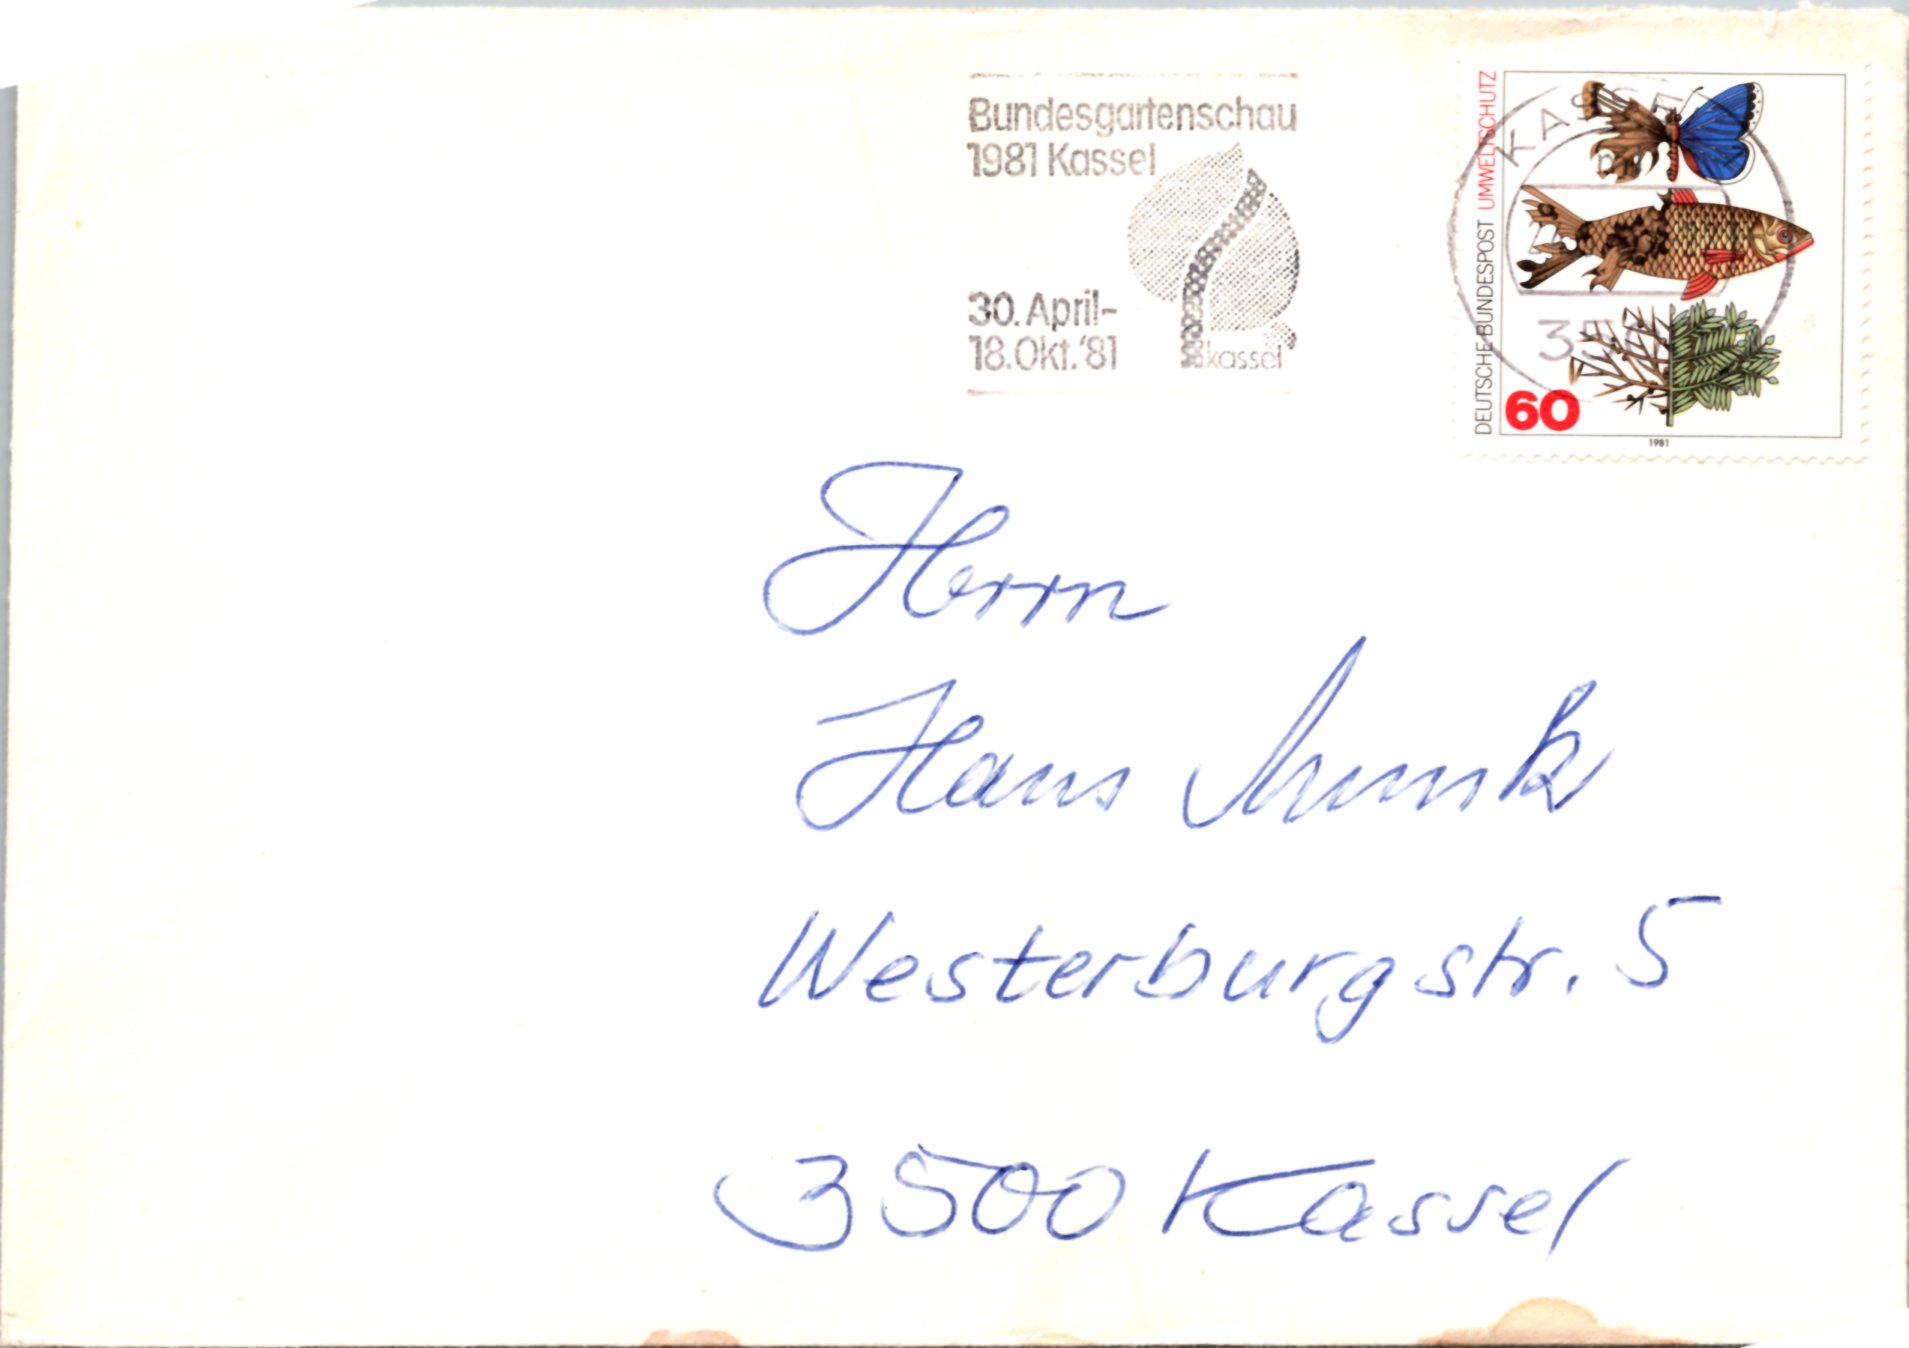 Bundesgartenschau
1981 Kassel
30. April-
18. Okt. '81
kassel
DEUTSCHE BUNDESPOST UMWELTSCHUTZ
60
1981
Herrn
Hans Munk
Westerburgstr. 5
3500 Kassel